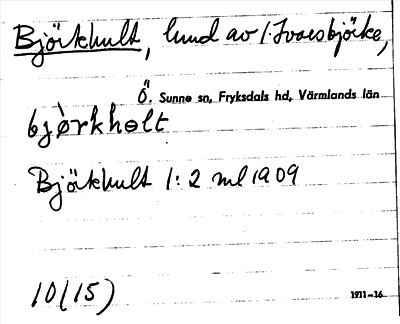 Björkhult, lund av l. Ivarsbjörke,
Ö. Sunne sn, Fryksdals hd, Värmlands län
bjørkholt
Björkhult 1:2 ml 1909
10(15)
1911-16